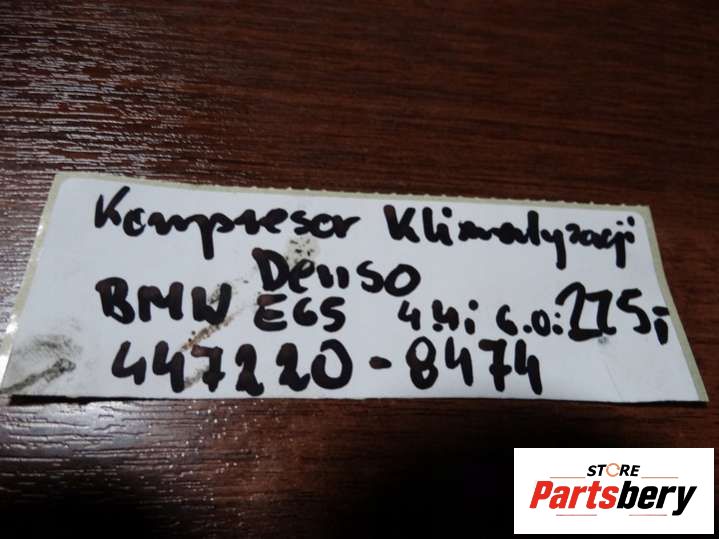 Kompresor Klimatyzacji
Denso
BMW E65 4.4i 6.0i 225;
447220-8474
STORE
Partsbery